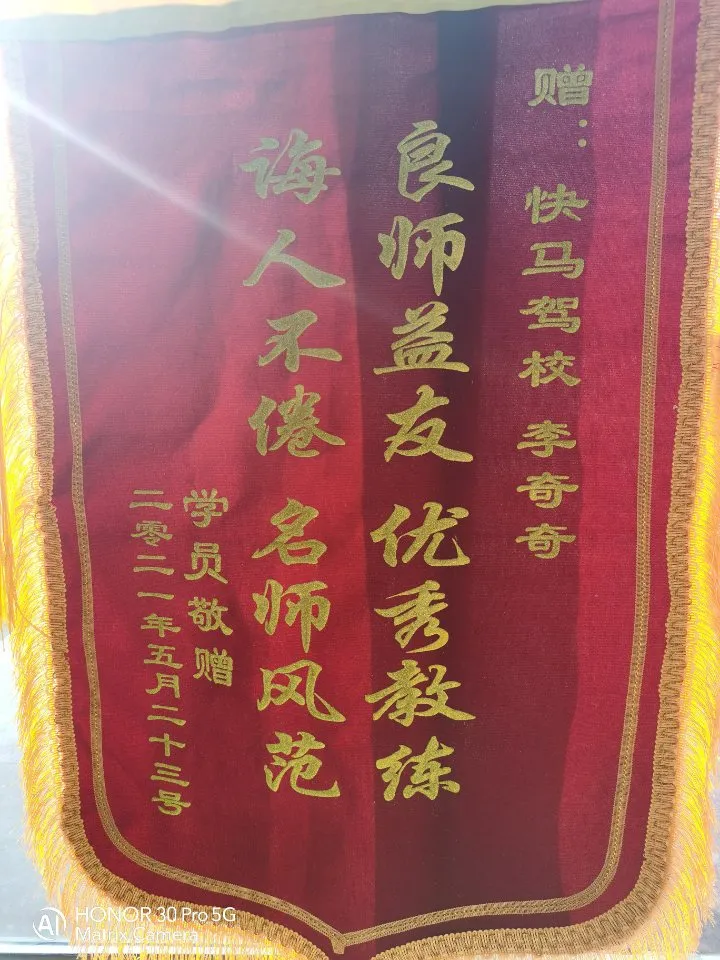 赠：快马驾校 李奇奇
良师益友 优秀教练
诲人不倦 名师风范
学员敬赠
二零二一年五月二十三号
HONOR 30 Pro 5G
Matrix Camera